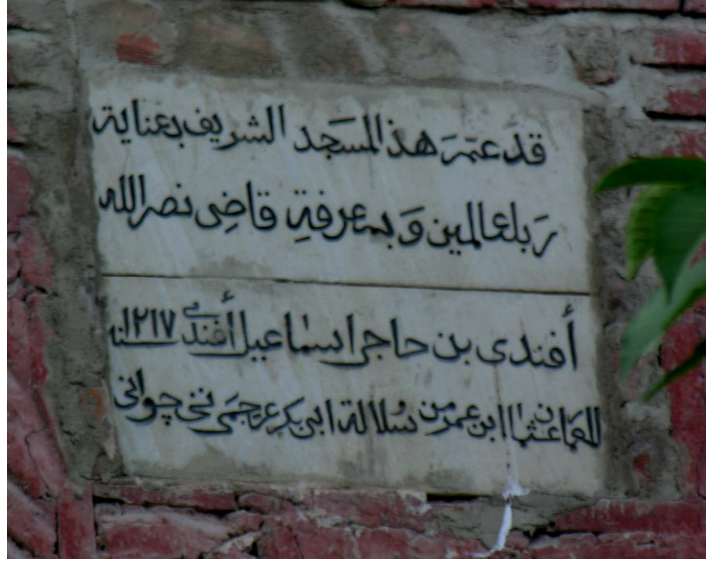 قد عمّرَ هذ المسَجد الشريف بعناية
رَبلعالمين وَ بمعرفةِ قاضِى نصرالله
أفندى بن حاجى اسماعيل أفندى سنه ١٢١٧
ابن عمر من سُلالة ابى بكر عجمى نخچوانى